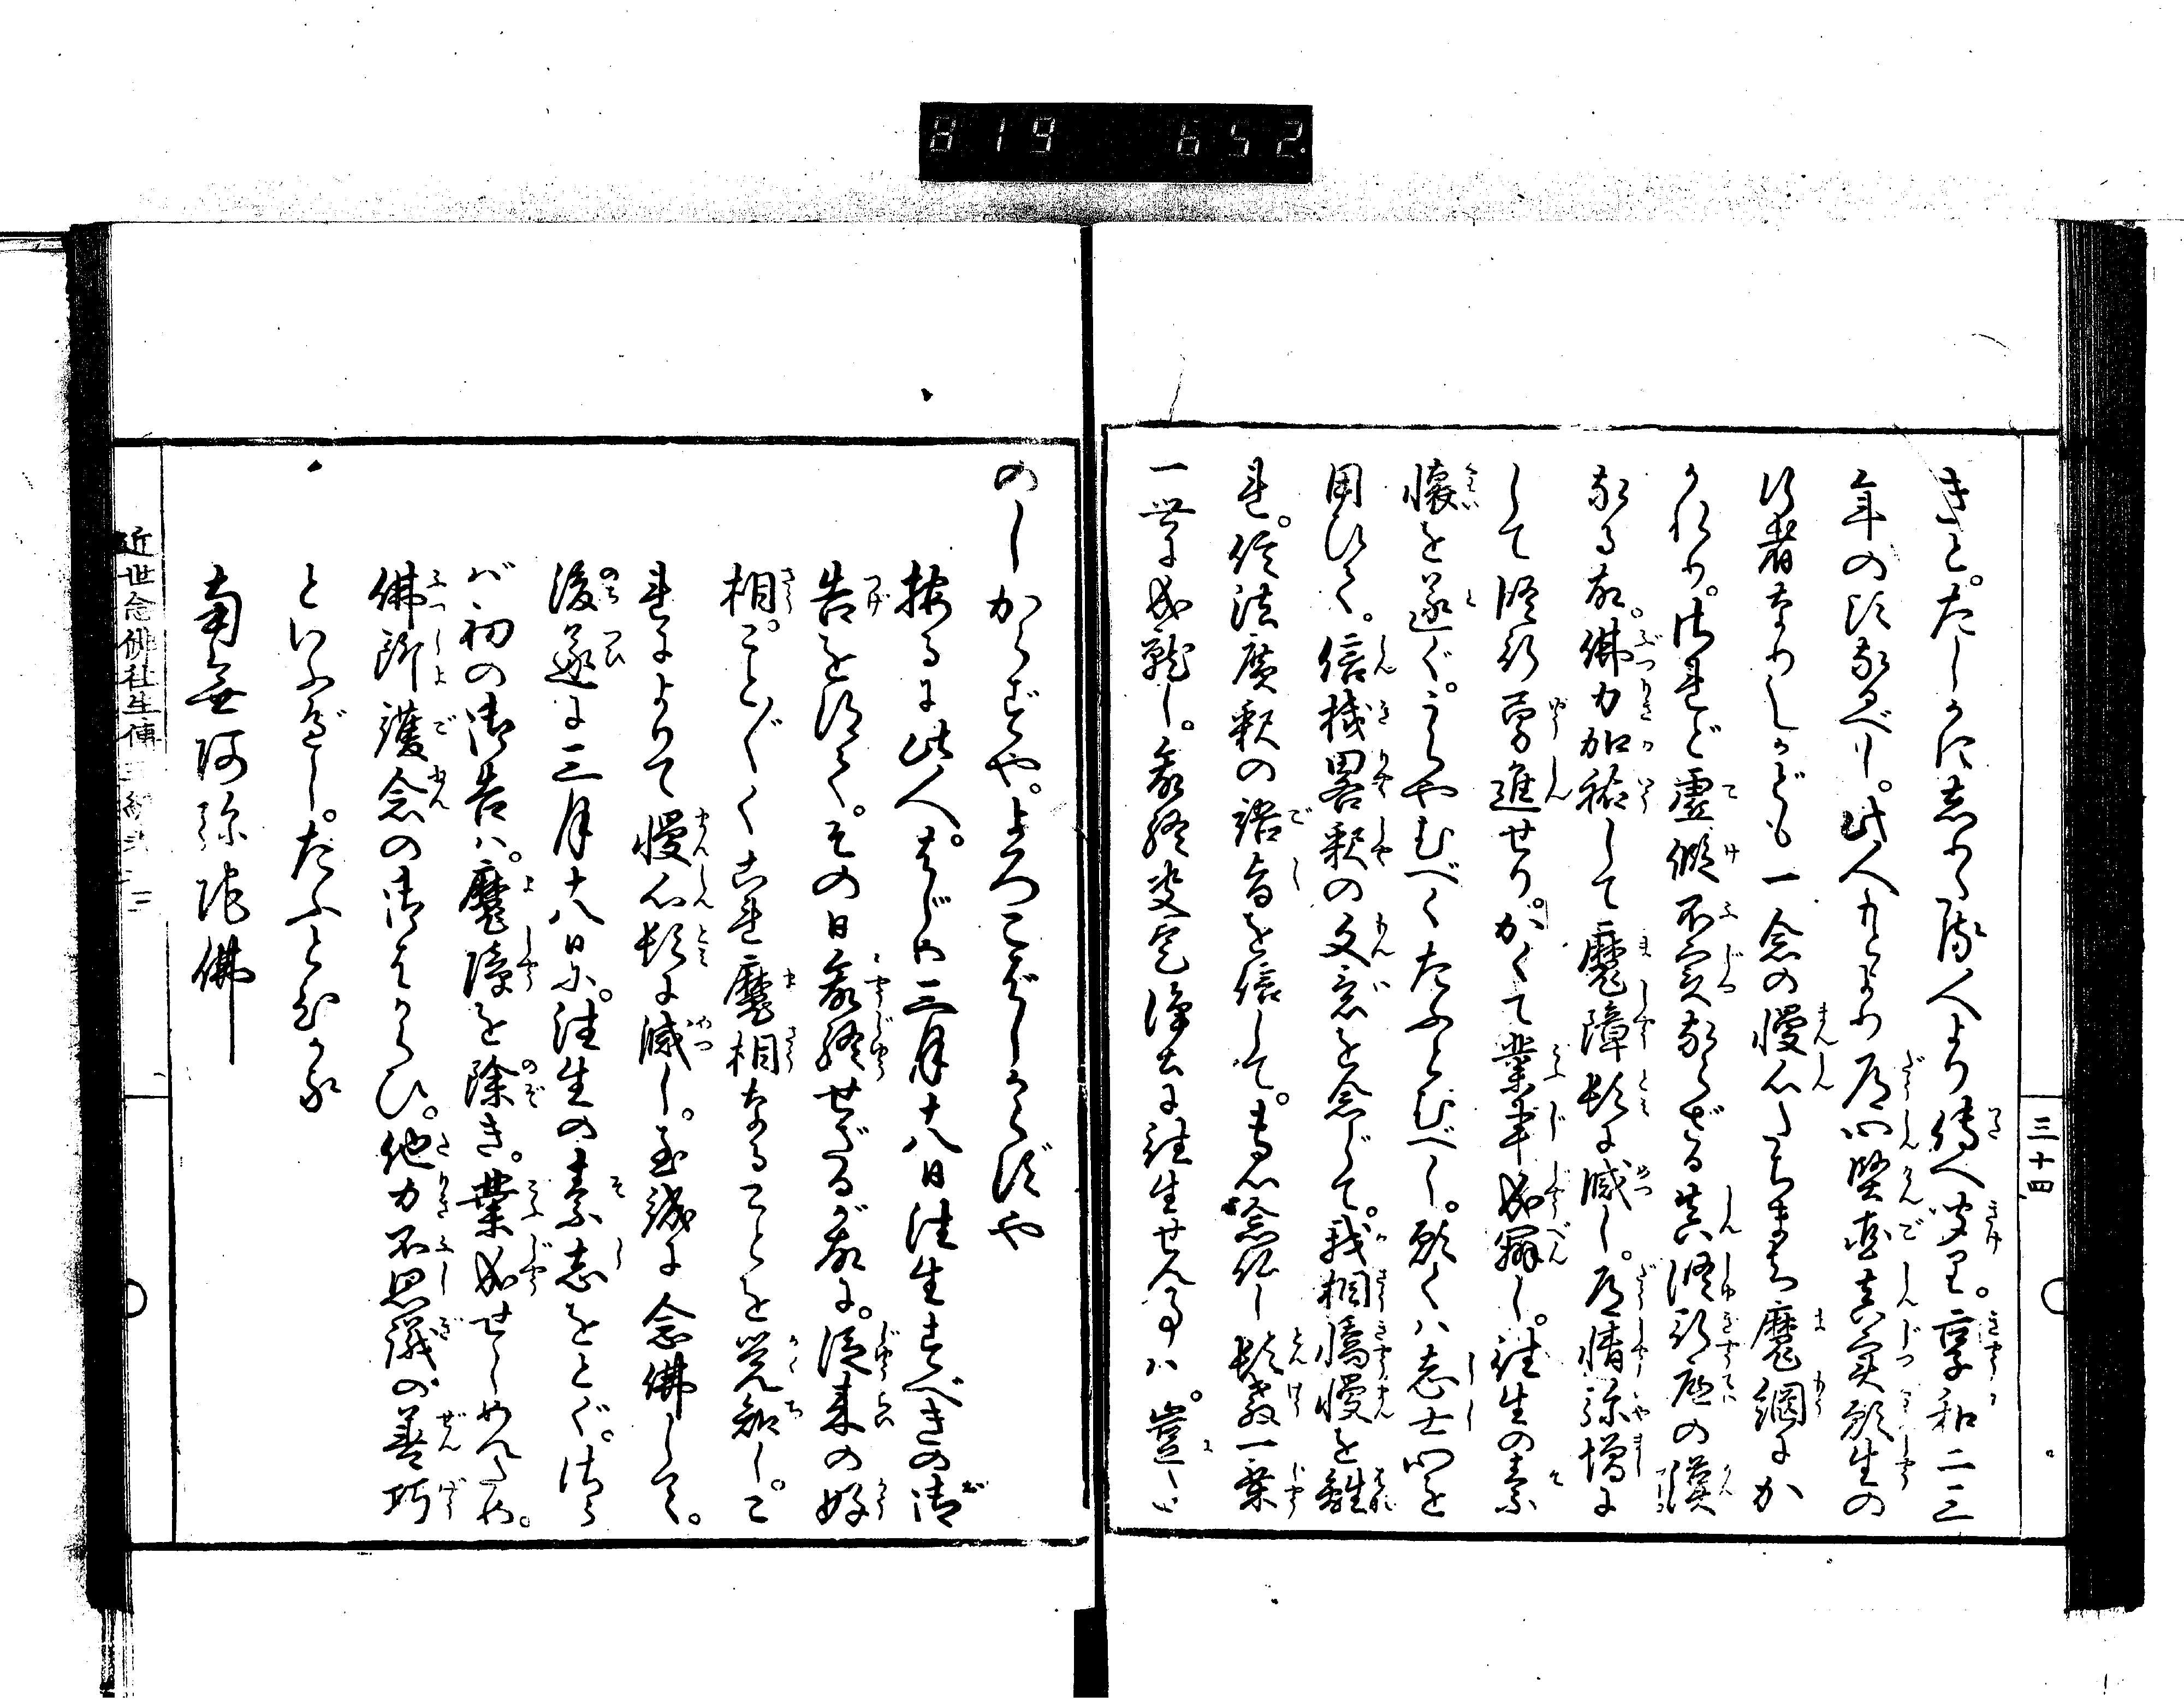 819 652
三十四
きと。たしかに志れる人より傳へ聞り。享和二三
年の頃なるべし。此人もとより道心堅固真実願生の
行者なりしかども一念の慢心たちまち魔網にか
かれり。されど虚仮不実ならざる真修行底の漢
なる故。佛力加祐して魔障頓に滅し。道情弥増に
して修行勇進せり。かくて業事成辨し。往生の素
懐を遂ぐ。うらやむべくたふとむべし。願くハ志士心を
用ひて。信機畧釈の文意を念じて。我相憍慢を離
れ。信法廣釈の語旨を信じて。専心念佛し頓教一乗
一世に成就し。命終決定浄土に往生せん事ハ。豈た
のしからずや。よろこばしからずや
按るに此人。はじめ三月十八日往生すべきの御
告を得て。その日命終せざるが故に。従来の好
相。ことごとくこれ魔相なることを覚知し。こ
れによりて慢心頓に滅し。至誠に念佛して。
後遂に三月十八日に。往生の素志をとぐ。され
バ初の御告ハ。魔障を除き。業成せしめんため。
佛所護念の御はからひ。他力不思議の善巧
といふべし。たふときかな
南無阿弥陀佛
近世念佛往生傳